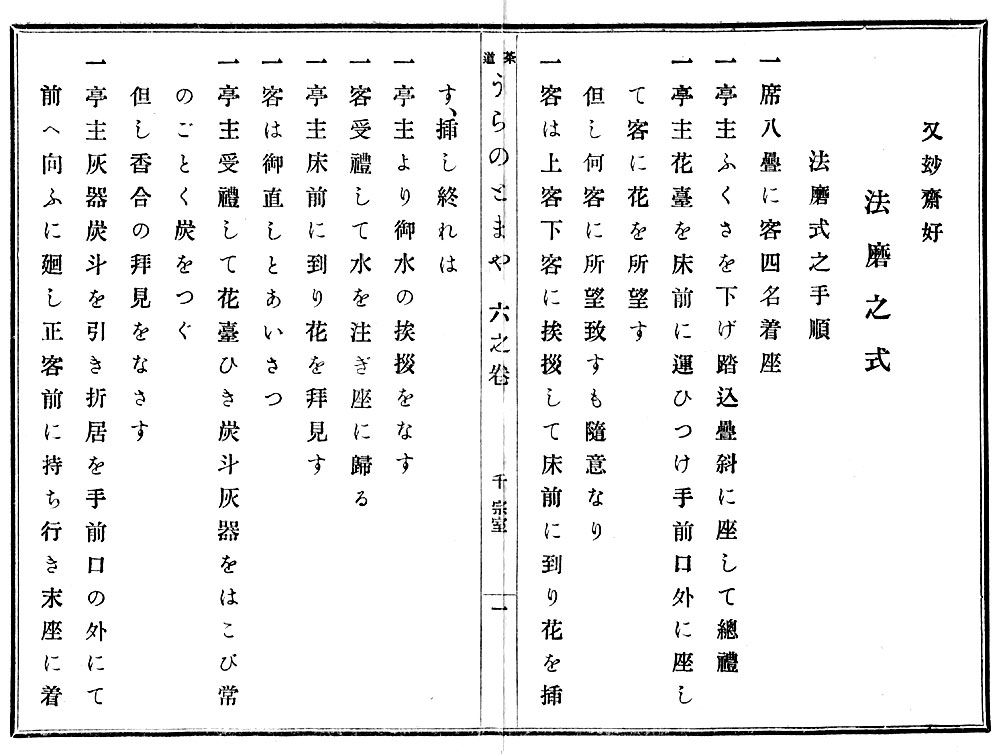 又玅齋好
法磨之式
法磨式之手順
一席八疊に客四名着座
一亭主ふくさを下げ踏込疊斜に座して總禮
一亭主花臺を床前に運ひつけ手前口外に座し
て客に花を所望す
但し何客に所望致すも隨意なり
一客は上客下客に挨拶して床前に到り花を揷
茶道
うらのとまや 六之卷
千宗室
一
す、揷し終れは
一亭主より御水の挨拶をなす
一客受禮して水を注ぎ座に歸る
一亭主床前に到り花を拜見す
一客は御直しとあいさつ
一亭主受禮して花臺ひき炭斗灰器をはこび常
のごとく炭をつぐ
但し香合の拜見をなさす
一亭主灰器炭斗を引き折居を手前口の外にて
前へ向ふに廻し正客前に持ち行き末座に着